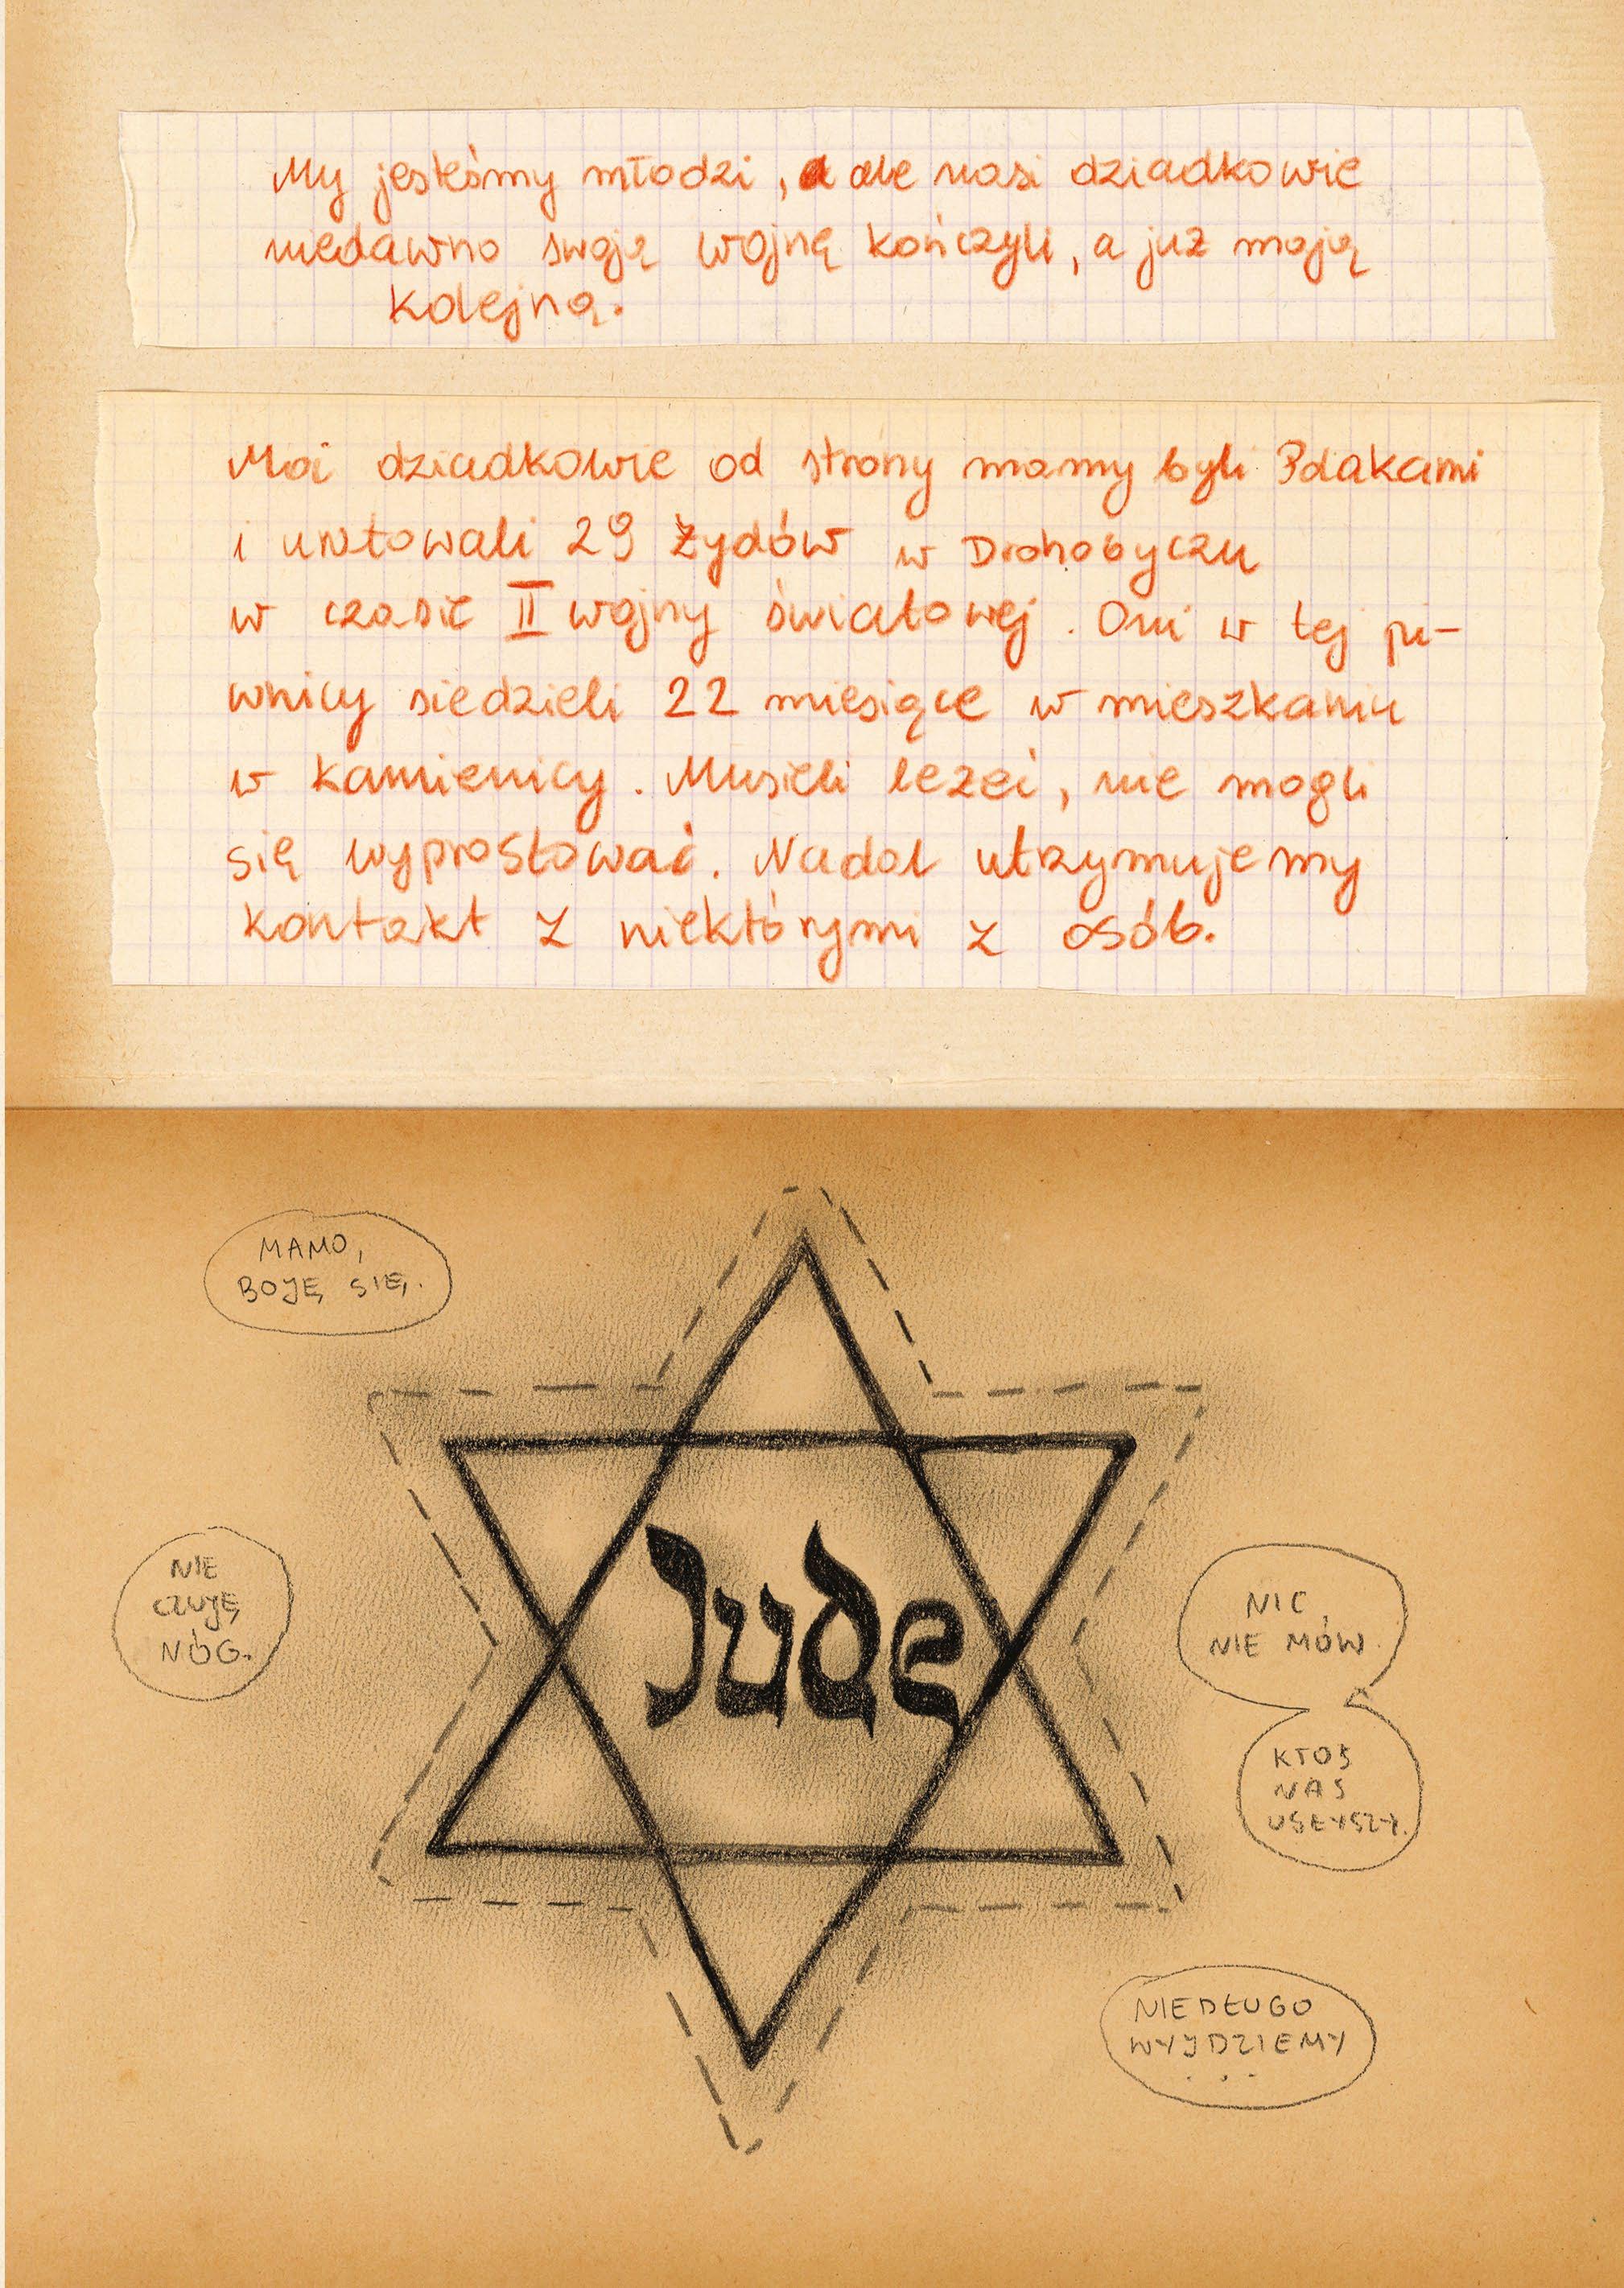 My jesteśmy młodzi, ale nasi dziadkowie
niedawno swoją wojnę kończyli, a już mają
kolejną.
Moi dziadkowie od strony mamy byli Polakami
i uratowali 29 Żydów w Drohobyczu
w czasie II wojny światowej. Oni w tej pi-
wnicy siedzieli 22 miesiące w mieszkaniu
w kamienicy. Musieli leżeć, nie mogli
się wyprostować. Nadal utrzymujemy
kontakt z niektórymi z osób.
MAMO,
BOJĘ SIĘ.
NIE
CZUJĘ
NÓG.
Jude
NIC
NIE MÓW.
KTOŚ
NAS
USŁYSZY.
NIEDŁUGO
WYJDZIEMY
...